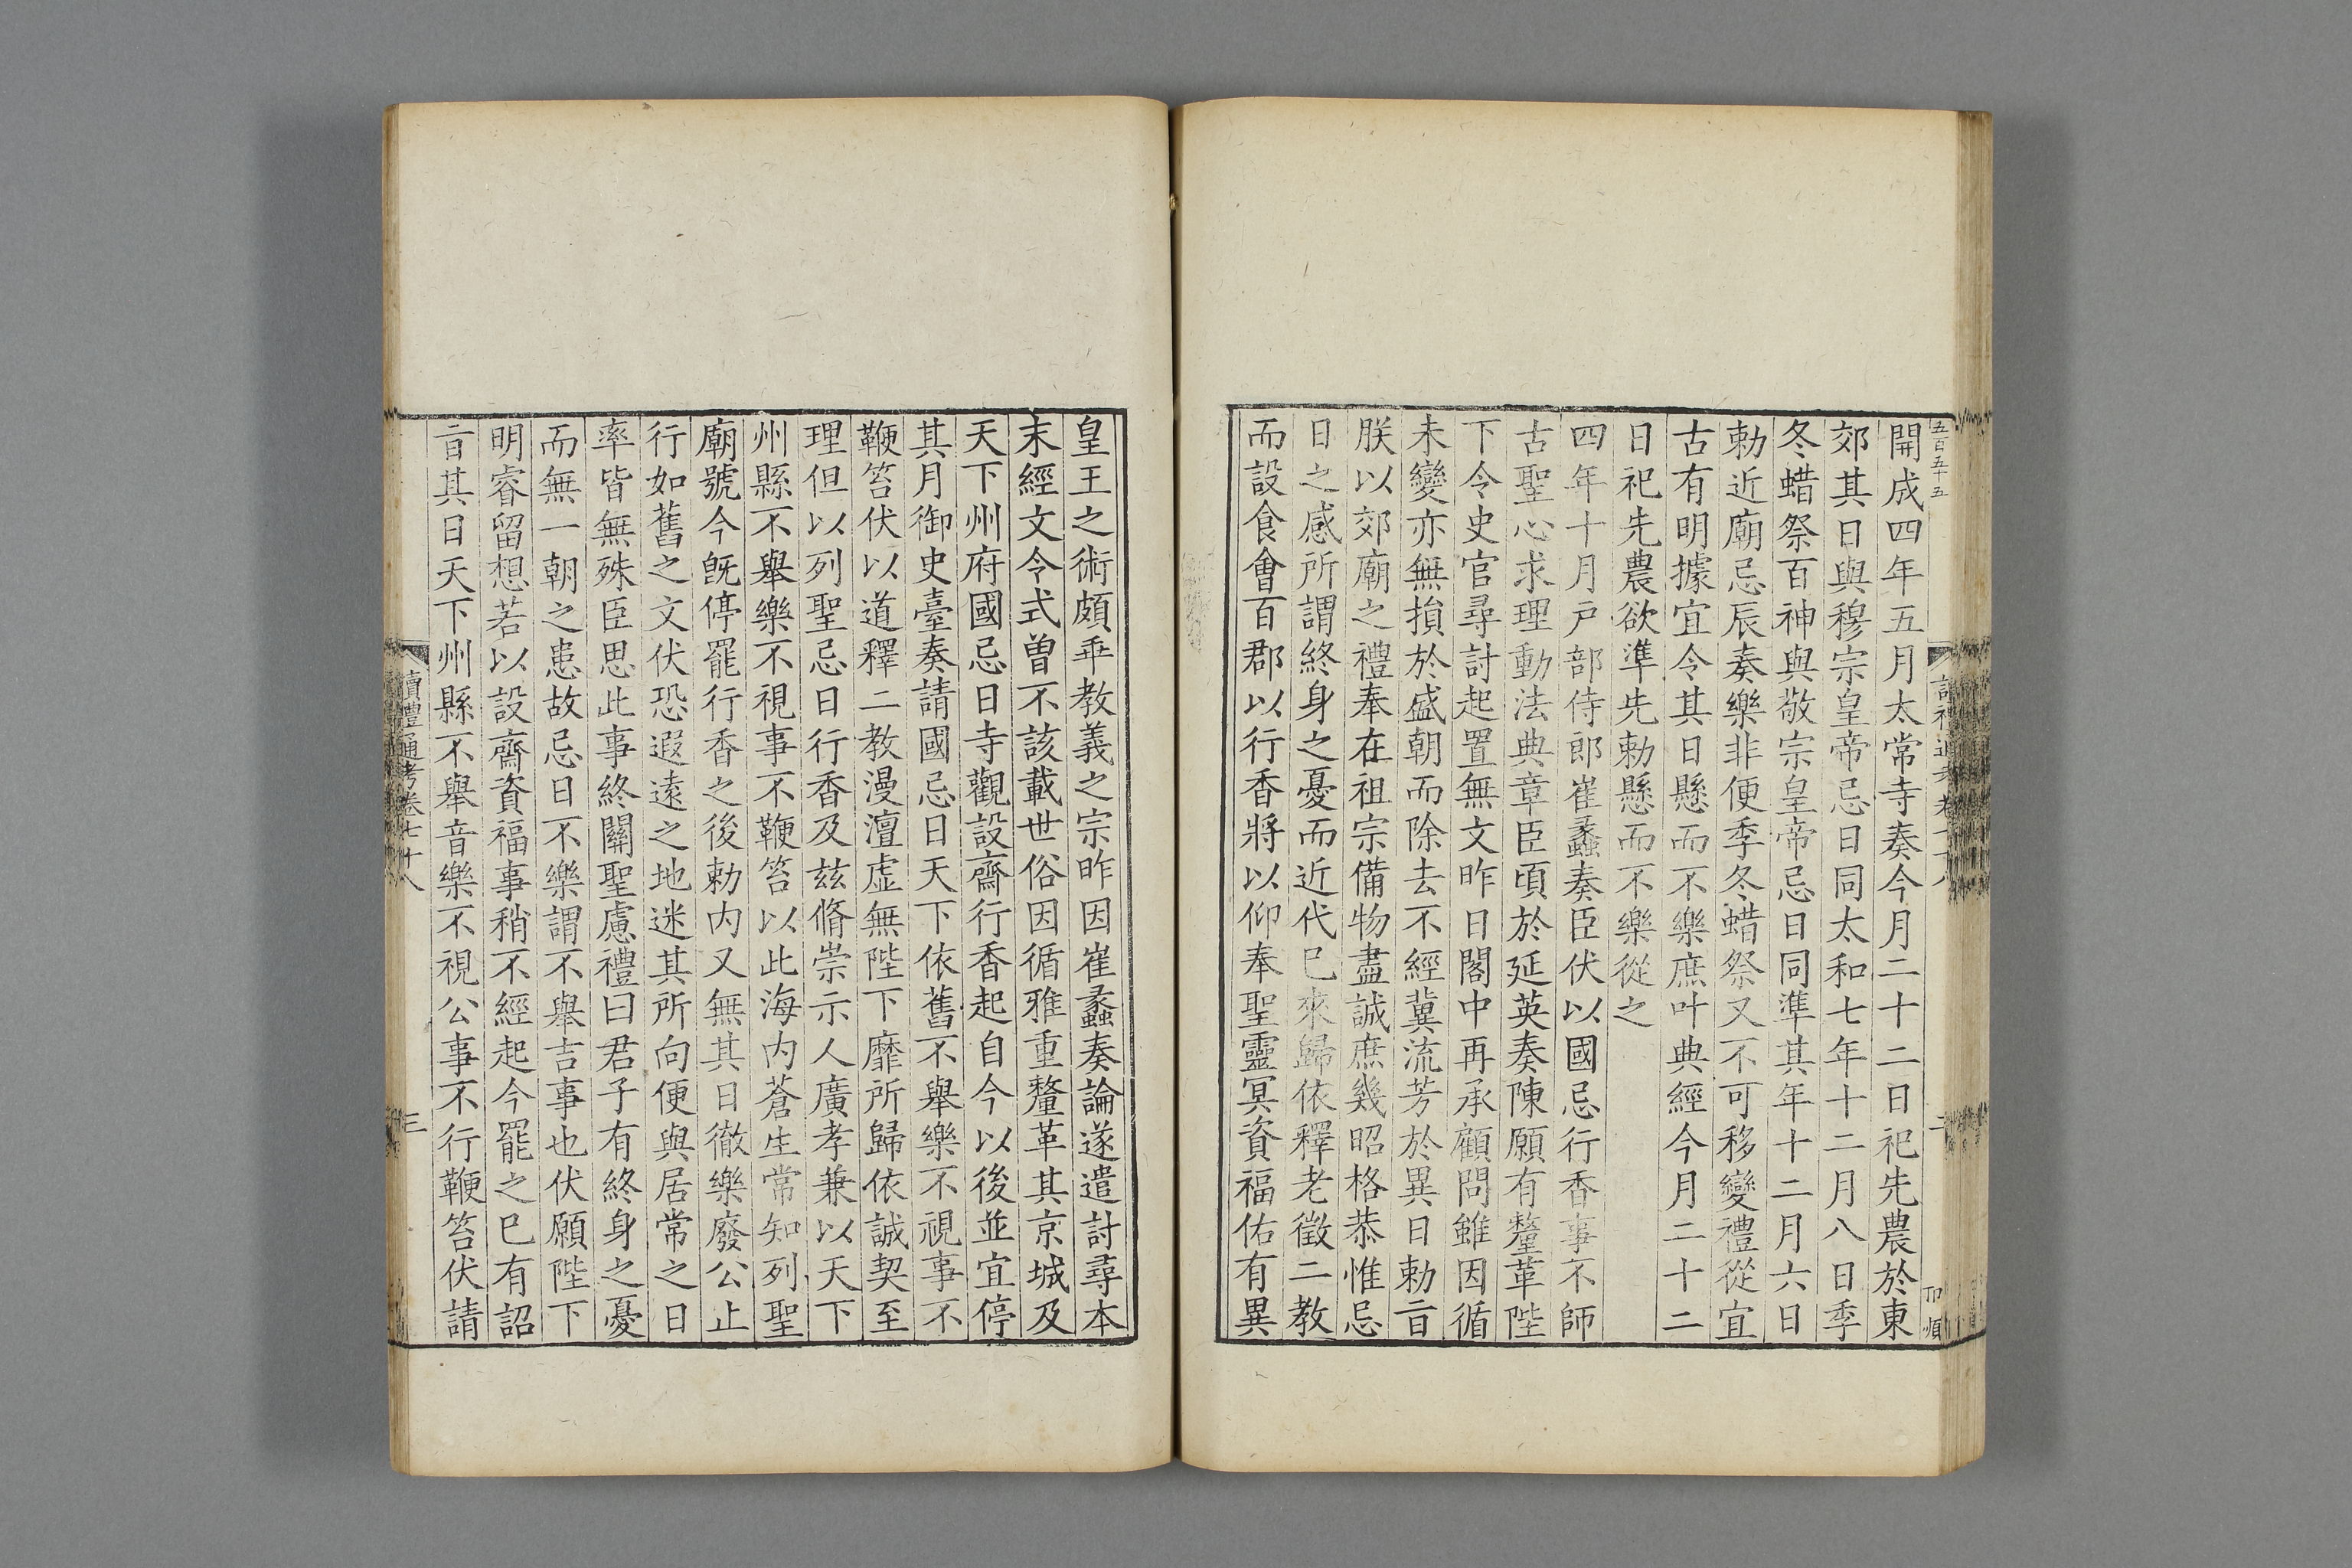 五百五十五
開成四年五月太常寺奏今月二十二日祀先農於東
郊其日與穆宗皇帝忌日同太和七年十二月八日季
冬蜡祭百神與敬宗皇帝忌日同準其年十二月六日
勅近廟忌辰奏樂非便季冬蜡祭又不可移變禮從宜
古有明據宜令其日懸而不樂庶叶典經今月二十二
日祀先農欲準先勅懸而不樂從之
四年十月戸部侍郎崔蠡奏臣伏以國忌行香事不師
古聖心求理動法典章臣頃於延英奏陳願有釐革陛
下令史官尋討起置無文昨日閣中再承顧問雖因循
未變亦無損於盛朝而除去不經冀流芳於異日勅㫖
朕以郊廟之禮奉在祖宗備物盡誠庶幾昭格恭惟忌
日之感所謂終身之憂而近代已來歸依釋老徵二教
而設食會百郡以行香將以仰奉聖靈冥資福佑有異
皇王之術頗乖教義之宗昨因崔蠡奏論遂遣討尋本
末經文令式曾不該載世俗因循雅重釐革其京城及
天下州府國忌日寺觀設齋行香起自今以後並宜停
其月御史臺奏請國忌日天下依舊不舉樂不視事不
鞭笞伏以道釋二教漫澶虛無陛下靡所歸依誠契至
理但以列聖忌日行香及茲脩崇示人廣孝兼以天下
州縣不舉樂不視事不鞭笞以此海内蒼生常知列聖
廟號今旣停罷行香之後勅内又無其日徹樂廢公止
行如舊之文伏恐遐遠之地迷其所向便與居常之日
率皆無殊臣思此事終關聖慮禮曰君子有終身之憂
而無一朝之患故忌日不樂謂不舉吉事也伏願陛下
明睿留想若以設齋資福事稍不經起今罷之已有詔
㫖其日天下州縣不舉音樂不視公事不行鞭笞伏請
讀禮通考卷七十八
三